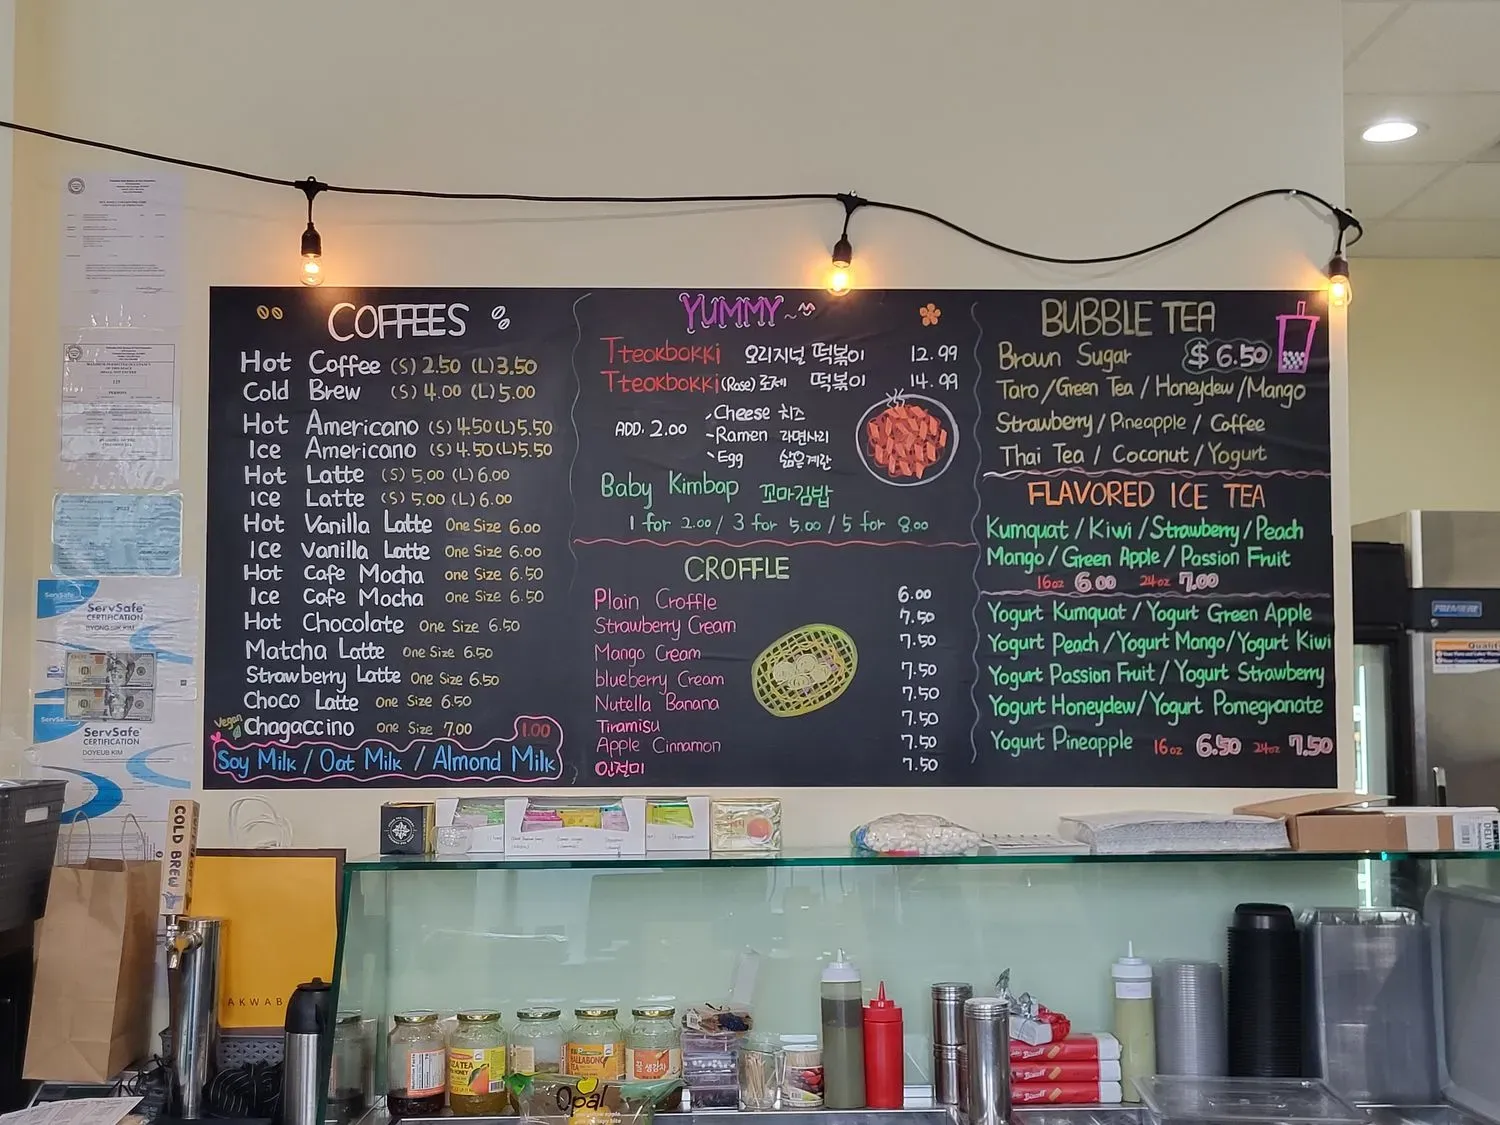 COFFEES
Hot Coffee (S) 2.50 (L) 3.50
Cold Brew (S) 4.00 (L) 5.00
Hot Americano (S) 4.50 (L) 5.50
Ice Americano (S) 4.50 (L) 5.50
Hot Latte (S) 5.00 (L) 6.00
Ice Latte (S) 5.00 (L) 6.00
Hot Vanilla Latte One Size 6.00
Ice Vanilla Latte One Size 6.00
Hot Cafe Mocha one Size 6.50
Ice Cafe Mocha one Size 6.50
Hot Chocolate One Size 6.50
Matcha Latte One Size 6.50
Strawberry Latte One Size 6.50
Choco Latte One Size 6.50
Vegan Chagaccino One Size 7.00
1.00
Soy Milk / Oat Milk / Almond Milk
YUMMY~^^
Tteokbokki 오리지널 떡볶이 12.99
Tteokbokki (Rose) 로제 떡볶이 14.99
ADD. 2.00
Cheese 치즈
-Ramen 라면사리
Egg 삶은계란
Baby Kimbap 꼬마김밥
1 for 2.00 / 3 for 5.00 / 5 for 8.00
CROFFLE
Plain Croffle 6.00
Strawberry Cream 7.50
Mango Cream 7.50
blueberry Cream 7.50
Nutella Banana 7.50
Tiramisu 7.50
Apple Cinnamon 7.50
인절미 7.50
BUBBLE TEA
Brown Sugar $6.50
Taro / Green Tea / Honeydew / Mango
Strawberry / Pineapple / Coffee
Thai Tea / Coconut / Yogurt
FLAVORED ICE TEA
Kumquat / Kiwi / Strawberry / Peach
Mango / Green Apple / Passion Fruit
16oz 6.00 24oz 7.00
Yogurt Kumquat / Yogurt Green Apple
Yogurt Peach / Yogurt Mango / Yogurt Kiwi
Yogurt Passion Fruit / Yogurt Strawberry
Yogurt Honeydew / Yogurt Pomegranate
Yogurt Pineapple 16oz 6.50 24oz 7.50
ServSafe
CERTIFICATION
BYONG SIK KIM
ServSafe
CERTIFICATION
DOYEUB KIM
COLD BREW
AKWAB
HALLABONG
TEA
생강차
Opal
Biscoff
PREMIER